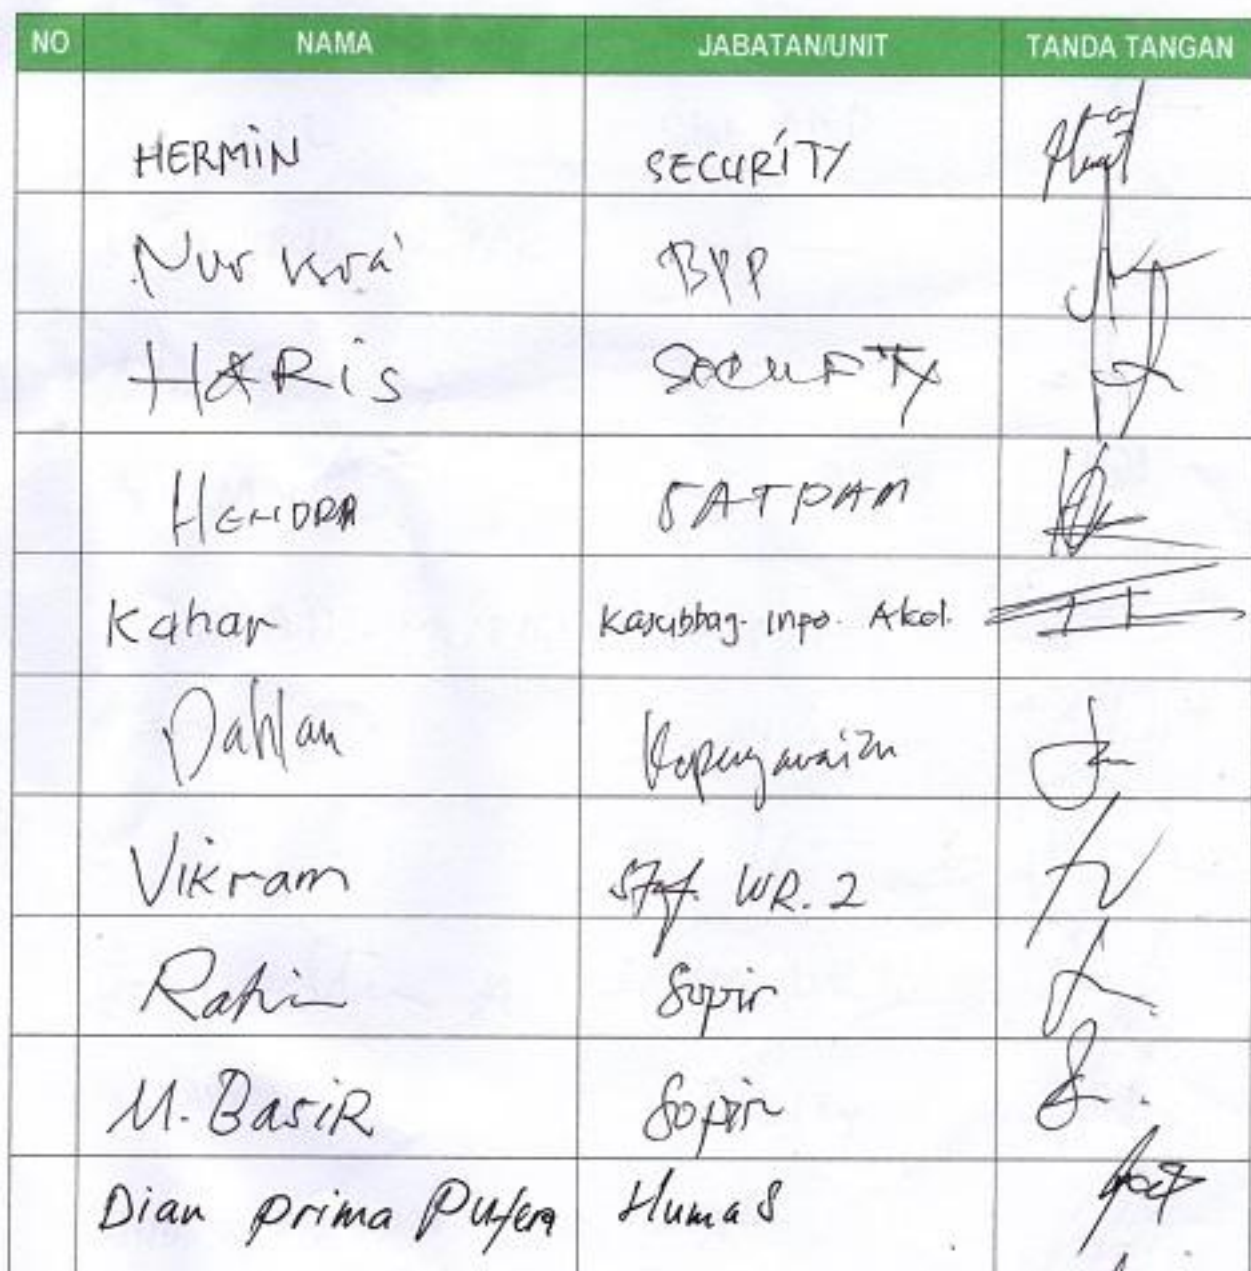 NO NAMA JABATAN/UNIT TANDA TANGAN
HERMIN SECURITY
Nur BPP
HARIS SECURITY
HENDRA SATPAM
Kahar Kasubbag. Inpo. Akd.
Dahlan Kepegawaian
Vikram Staf. WR. 2
Rahim Sopir
M. BasiR Sopir
Dian prima Putera Humas